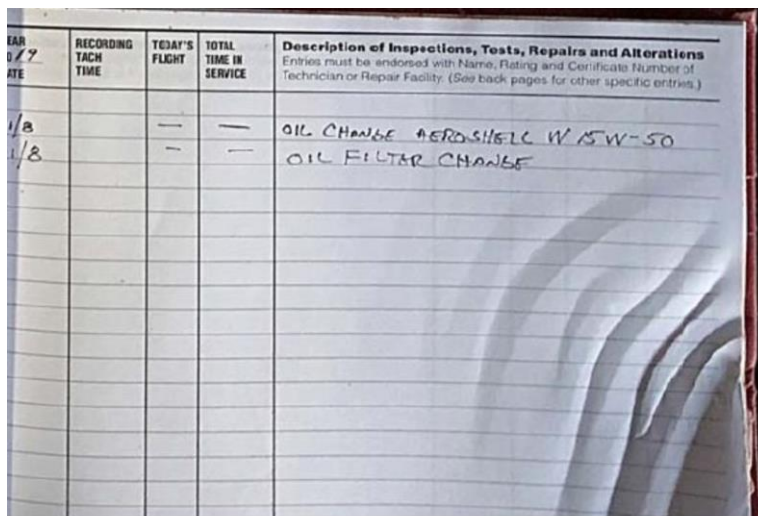 EAR
19
ATE
RECORDING
TACH
TIME
TODAY'S
FLIGHT
TOTAL
TIME IN
SERVICE
Description of Inspections, Tests, Repairs and Alterations
Entries must be endorsed with Name, Rating and Certificate Number of
Technician or Repair Facility. (See back pages for other specific entries.)
1/8 — — OIL CHANGE AEROSHELL W 15W-50
1/8 — — OIL FILTER CHANGE